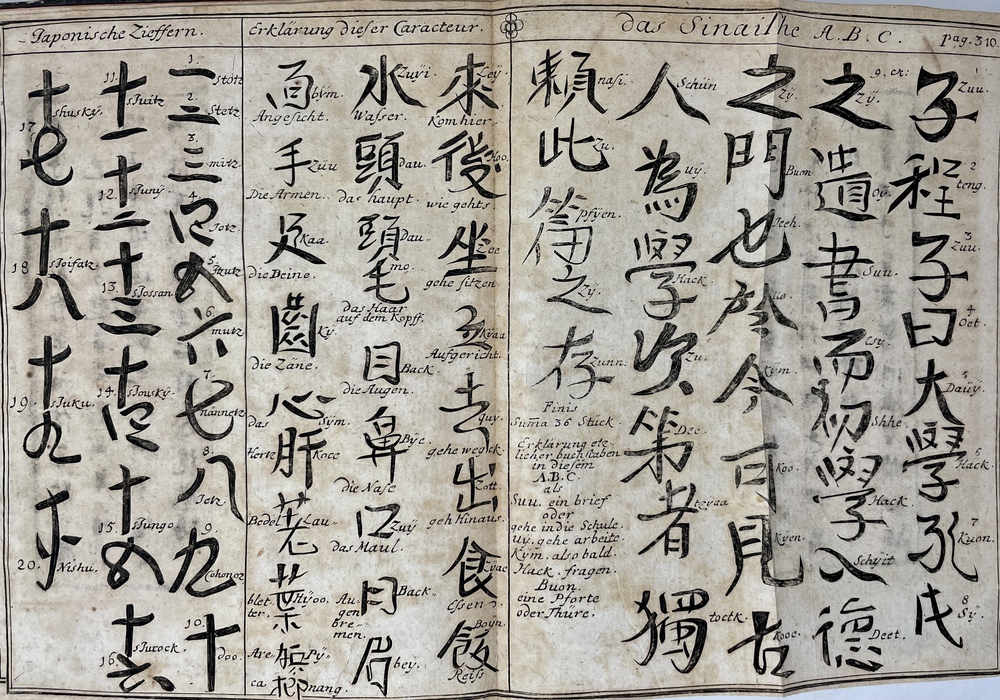 das Sinaishe A.B.C. pag. 310
子程子曰大學孔氏
1 Zuu.
2 teng.
3 Zuu.
4 Oet.
5 Daüÿ.
6 Hack.
7 Kuon.
8 Sÿ.
之遺書而初學入德
9. er: Zÿ.
Oÿ.
Suu.
Csÿ.
Shhe
Hack
Schÿit
Deet.
之門也於今可見古
Zÿ.
Buon
Jeeh.
Kÿm.
Koo.
Kÿen.
Kooc.
人為學次第者獨
Schün
uÿ.
Hack.
Zu.
Dee.
tzÿaa
toctk.
頼此篇之存
nasi.
Zu.
pfÿen.
Zÿ.
Zunn.
Finis
Suma 36 Stück.
Erklärung etz-
licher buchstaben
in diesem
A.B.C.
als
Suu. ein brief
oder
gehe in die Schule.
uÿ. gehe arbeite.
Kÿm. also bald.
Hack. fragen.
Buon.
eine Pforte
oder Thüre.
Erklärung dieser Caracteur.
來後坐立去出食飯
Leÿ.
Kom hier.
Hoo.
wie gehts
Zee
gehe sitzen.
Kÿaa
Aufgericht.
quÿ.
gehe wegk.
Zott.
geh Hinaus.
Zÿac
Essen
Boÿn.
Reiß
水頭頭毛目鼻口目眉
Zuÿi.
Waßer.
dau.
das haupt.
Dau
mo.
das Haar
auf dem Kopff.
Back.
die Augen.
Bÿe.
die Nase
Zuÿ
das Maul.
Back
Au-
gen
bre-
men.
beÿ.
面手足齒心肝荖葉梹榔
bÿm.
Angesicht.
Züu
Die Armen.
Kaa.
die Beine.
Kÿ
die Zäne.
das Sÿm.
Hertz Koce
Bedel Lau
blet- Hÿoo.
ter.
Are- Pÿ-
ca nang.
Japonische Zieffern.
一二三四五六七八九十
1. Stotz
2. Stetz.
3. mitz.
4. Jotz.
5. Itutz
6. mutz
7. nannetz
8. Jetz.
9. Cohonoz
10. doo.
十一十二十三十四十五十六
11. sJuitz
12. sJunÿ.
13. sJossan.
14. sJousky.
15. sJungo.
16. sJurock.
十七十八十九廿
17. shuskÿ.
18 sJoifatz
19. sJuku.
20. Nishu.